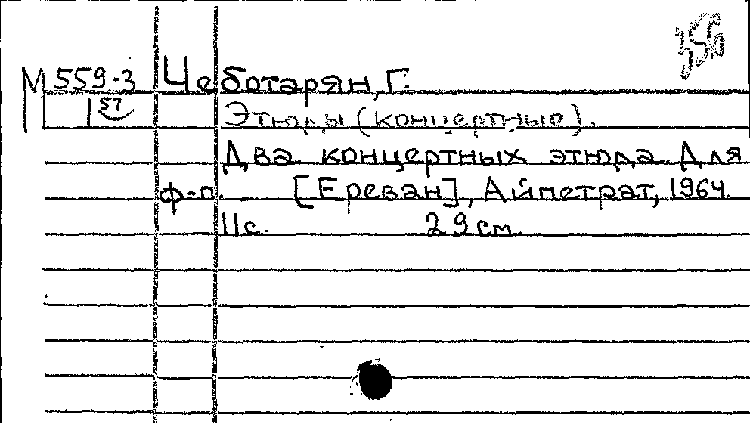 356
М 559-3 Чеботарян, Г.
1 57
Этюды (концертные).
Два концертных этюда. Для
ф-п. [Ереван], Айпетрат, 1964.
11с. 29см.